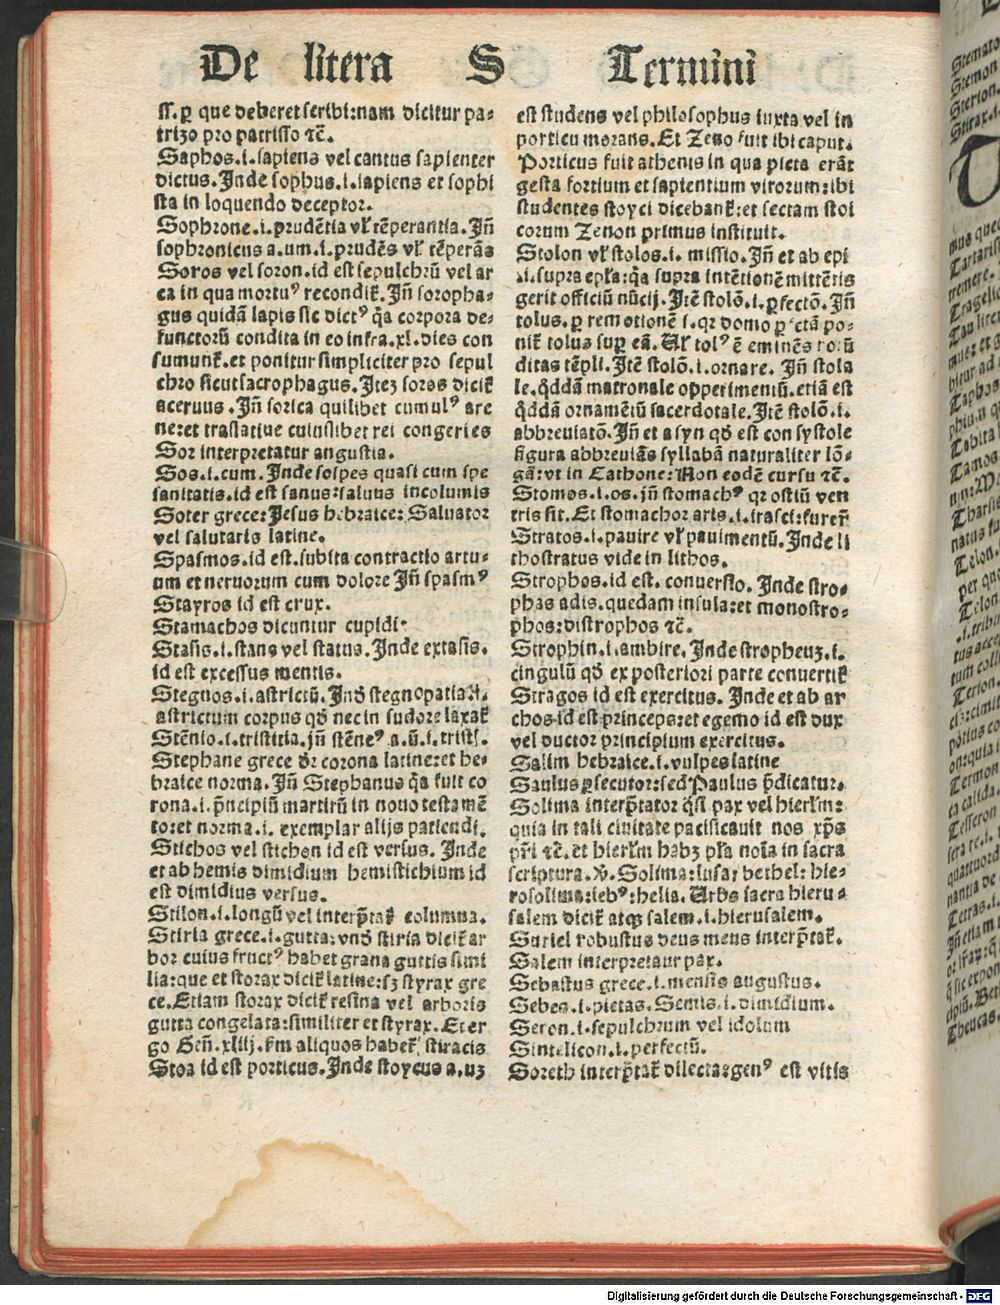 De litera S Termini
ss. ꝑ que deberet scribi:nam dicitur pa⸗
trizo pro patrisso ⁊c̄.
Saphos.i.sapiens vel cantus sapienter
dictus. Inde sophus.i.sapiens et sophi
sta in loquendo deceptor.
Sophrone.i.prudētia vl̓ tēperantia. Iñ
sophronicus a.um.i.prudēs vl̓ tēperās
Soros vel soron.id est sepulchrū vel ar
ca in qua mortuꝰ recondit᷑. Iñ soropha⸗
gus quidā lapis sic dictꝰ q̄a corpora de⸗
functorū condita in eo infra.xl.dies con
sumunt᷑.et ponitur simpliciter pro sepul
chro sicut sacrophagus. Iteꝫ soros dicit᷑
aceruus. Iñ sorica quilibet cumulꝰ are
ne:et traslatiue cuiuslibet rei congeries
Sor interpretatur angustia.
Sos.i.cum. Inde sospes quasi cum spe
sanitatis.id est sanus:saluus incolumis
Soter grece:Jesus hebraice: Saluator
vel salutaris latine.
Spasmos.id est.subita contractio artu⸗
um et neruorum cum dolore Iñ spasmꝰ
Stayros id est crux.
Stamachos dicuntur cupidi.
Stasis.i.stans vel status. Inde extasis.
id est excessus mentis.
Stegnos.i.astrictū. Inō stegnopatia.i.
astrictum corpus qō nec in sudore laxat᷑
Stēnio.i.tristitia.iñ stēneꝰ a.ū.i.tristꝭ.
Stephane grece dr̄ corona latine:et he⸗
braice norma. Iñ Stephanus q̄a fuit co
rona.i.p̄ncipiū martirū in nouo testamē
to:et norma.i. exemplar alijs patiendi.
Stichos vel stichon id est versus. Inde
et ab hemis dimidium hemistichium id
est dimidius versus.
Stilon.i.longū vel interp̄tat᷑ columna.
Stiria grece.i.gutta: vnō stiria dicit᷑ ar
bor cuius fructꝰ habet grana guttis simi
lia:que et storax dicit᷑ latine:sꝫ styrax gre
ce. Etiam storax dicit᷑ resina vel arboris
gutta congelata:similiter et styrax. Et er
go Geñ. xliij. fm aliquos habet᷑ stiracis
Stoa id est porticus. Inde stoycus a.uꝫ
est studens vel philosophus iuxta vel in
porticu morans. Et Zeno fuit ibi caput.
Porticus fuit athenis in qua picta erāt
gesta fortium et sapientium virorum:ibi
studentes stoyci dicebant᷑:et sectam stoi
corum Zenon primus instituit.
Stolon vl̓ stolos.i. missio. Iñ et ab epi
.i.supra ep̄la:q̄a supra intētionē mittētis
gerit officiū nūcij. Itē stolō.i.ꝑfectō. Iñ
tolus. ꝑ remotionē s. qꝛ domo ꝑfctā po⸗
nit᷑ tolus sup eā. Vl̓ tolꝰ ē eminēs rotū
ditas tēpli. Itē stolō.i.ornare. Iñ stola
le.q̄ddā matronale opperimentū.etiā est
q̄ddā ornamētū sacerdotale. Itē stolō.i.
abbreuiatō. Iñ et a syn qō est con systole
figura abbreuiās syllabā naturaliter lō⸗
gā:vt in Cathone: Non eodē cursu ⁊c̄.
Stomos.i.os. iñ stomachꝰ qꝛ ostiū ven
tris sit. Et stomachor aris.i.irasci:furer᷑
Stratos.i.pauire vl̓ pauimentū. Inde li
thostratus vide in lithos.
Strophos.id est. conuersio. Inde stro⸗
phas adis.quedam insula:et monostro⸗
phos:distrophos ⁊c̄.
Strophin.i.ambire. Inde stropheuꝫ.i.
cingulū qō ex posteriori parte conuertit᷑
Stragos id est exercitus. Inde et ab ar
chos id est princeps:et egemo id est dux
vel ductor principium exercitus.
Salim hebraice.i.vulpes latine
Saulus ꝑsecutor:sed Paulus p̄dicatur.
Solima interp̄tator q̄si pax vel hierl̓m:
quia in tali ciuitate pacificauit nos xp̄s
pr̄i ⁊c̄. et hierl̓m habꝫ pl̄a noīa in sacra
scriptura. v̄. Solima:lusa: bethel: hie⸗
rosolima:iebꝰ:helia. Urbs sacra hieru⸗
salem dicit᷑ atqꝫ salem.i.hierusalem.
Suriel robustus deus meus interp̄tat᷑.
Salem interpretaur pax.
Sebastus grece.i.mensis augustus.
Sebes.i.pietas. Semis.i.dimidium.
Seron.i.sepulchrum vel idolum
Sintelicon.i.perfectū.
Soreth interp̄tat᷑ dilecta:genꝰ est vitis
Digitalisierung gefördert durch die Deutsche Forschungsgemeinschaft - DFG